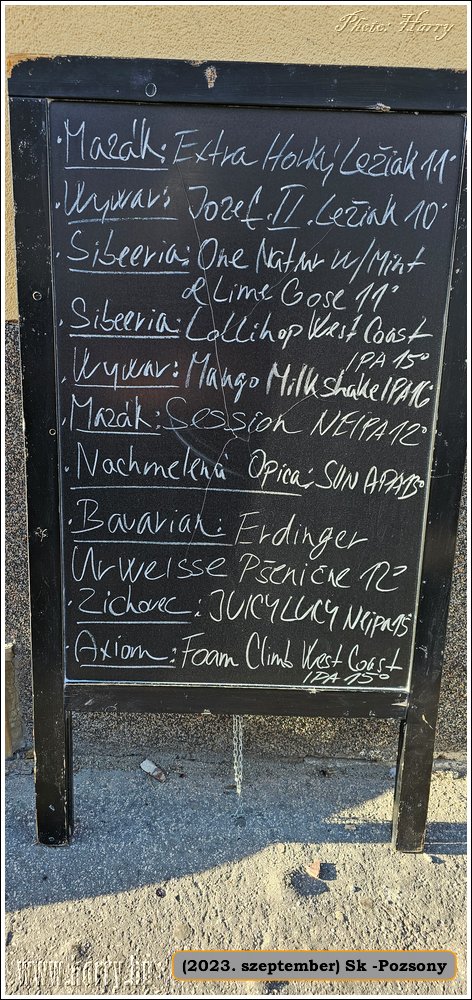 Photo: Harry
Mazák: Extra Horký Ležiak 11°
Wywar: Jozef. II. Ležiak 10°
Sibeeria: One Natur w/Mint
& Lime Gose 11°
Sibeeria: Lollihop West Coast
IPA 15°
Wywar: Mango Milkshake IPA 16°
Mazák: Session NEIPA 12°
Nachmelená Opica: SUN APA 13°
Bavarian: Erdinger
Urweisse Pšenične 12°
Zichovec: JUICY LUCY Neipa 15°
Axiom: Foam Climb West Coast
IPA 15°
(2023. szeptember) Sk -Pozsony